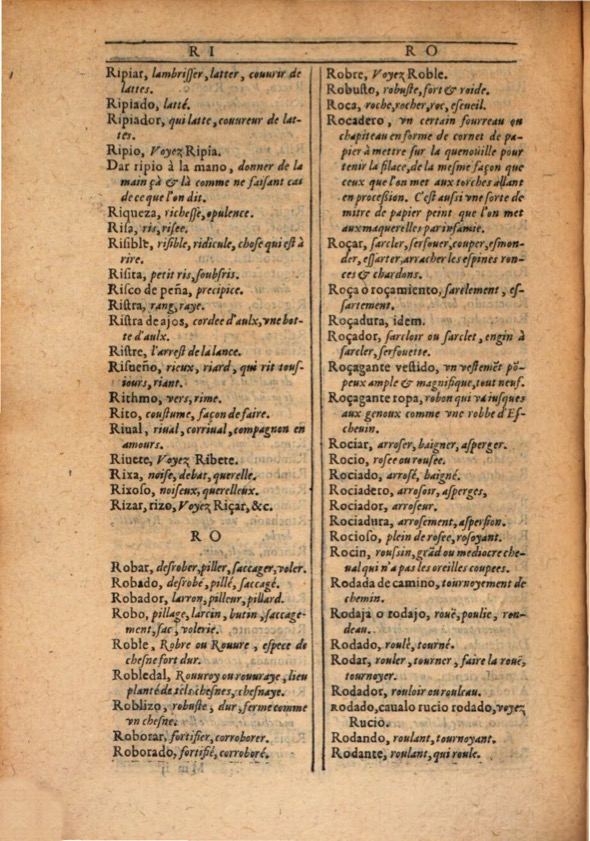 RI
Ripiar, lambrisser, latter, couurir de
lattes.
Ripiado, latté.
Ripiador, qui latte, couureur de lat-
tes.
Ripio, Voyez Ripia.
Dar ripio à la mano, donner de la
main çà & là comme ne faisant cas
de ce que l'on dit.
Riqueza, richesse, opulence.
Risa, ris, risee.
Risible, risible, ridicule, chose qui est à
rire.
Risita, petit ris, soubsris.
Risco de peña, precipice.
Ristra, rang, raye.
Ristra de ajos, cordee d'aulx, vne bot-
te d'aulx.
Ristre, l'arrest de la lance.
Risueño, rieux, riard, qui rit tous-
iours, riant.
Rithmo, vers, rime.
Rito, coustume, façon de faire.
Riual, riual, corriual, compagnon en
amours.
Riuete, Voyez Ribete.
Rixa, noise, debat, querelle.
Rixoso, noiseux, querelleux.
Rizar, rizo, Voyez Riçar, &c.
RO
Robar, desrober, piller, saccager, voler.
Robado, desrobé, pillé, saccagé.
Robador, larron, pilleur, pillard.
Robo, pillage, larcin, butin, saccage-
ment, sac, volerie.
Roble, Robre ou Rouure, espece de
chesne fort dur.
Robledal, Rouuroy ou rouuraye, lieu
planté de tels chesnes, chesnaye.
Roblizo, robuste, dur, ferme comme
vn chesne.
Roborar, fortifier, corroborer.
Roborado, fortifié, corroboré.
RO
Robre, Voyez Roble.
Robusto, robuste, fort & roide.
Roca, roche, rocher, roc, escueil.
Rocadero, vn certain fourreau ou
chapiteau en forme de cornet de pa-
pier à mettre sur la quenoüille pour
tenir la filace, de la mesme façon que
ceux que l'on met aux torches allant
en procession. C'est aussi vne sorte de
mitre de papier peint que l'on met
aux maquerelles par infamie.
Roçar, sarcler, serfouer, couper, esmon-
der, essarter, arracher les espines ron-
ces & chardons.
Roça o roçamiento, sarclement, es-
sartement.
Roçadura, idem.
Roçador, sarcloir ou sarclet, engin à
sarcler, serfouette.
Roçagante vestido, vn vestemēt pō-
peux ample & magnifique, tout neuf.
Roçagante ropa, robon qui va iusques
aux genoux comme vne robbe d'Es-
cheuin.
Rociar, arroser, baigner, asperger.
Rocio, rosee ou rousee.
Rociado, arrosé, baigné.
Rociadero, arrosoir, asperges,
Rociador, arroseur.
Rociadura, arrosement, aspersion.
Rocioso, plein de rosee, rosoyant.
Rocin, roussin, grãd ou mediocre che-
ual qui n'a pas les oreilles coupees.
Rodada de camino, tournoyement de
chemin.
Rodaja o rodajo, rouë, poulie, ron-
deau.
Rodado, roulé, tourné.
Rodar, rouler, tourner, faire la rouë,
tournoyer.
Rodador, rouloir ou rouleau.
Rodado, caualo rucio rodado, voyez
Rucio.
Rodando, roulant, tournoyant.
Rodante, roulant, qui roule.